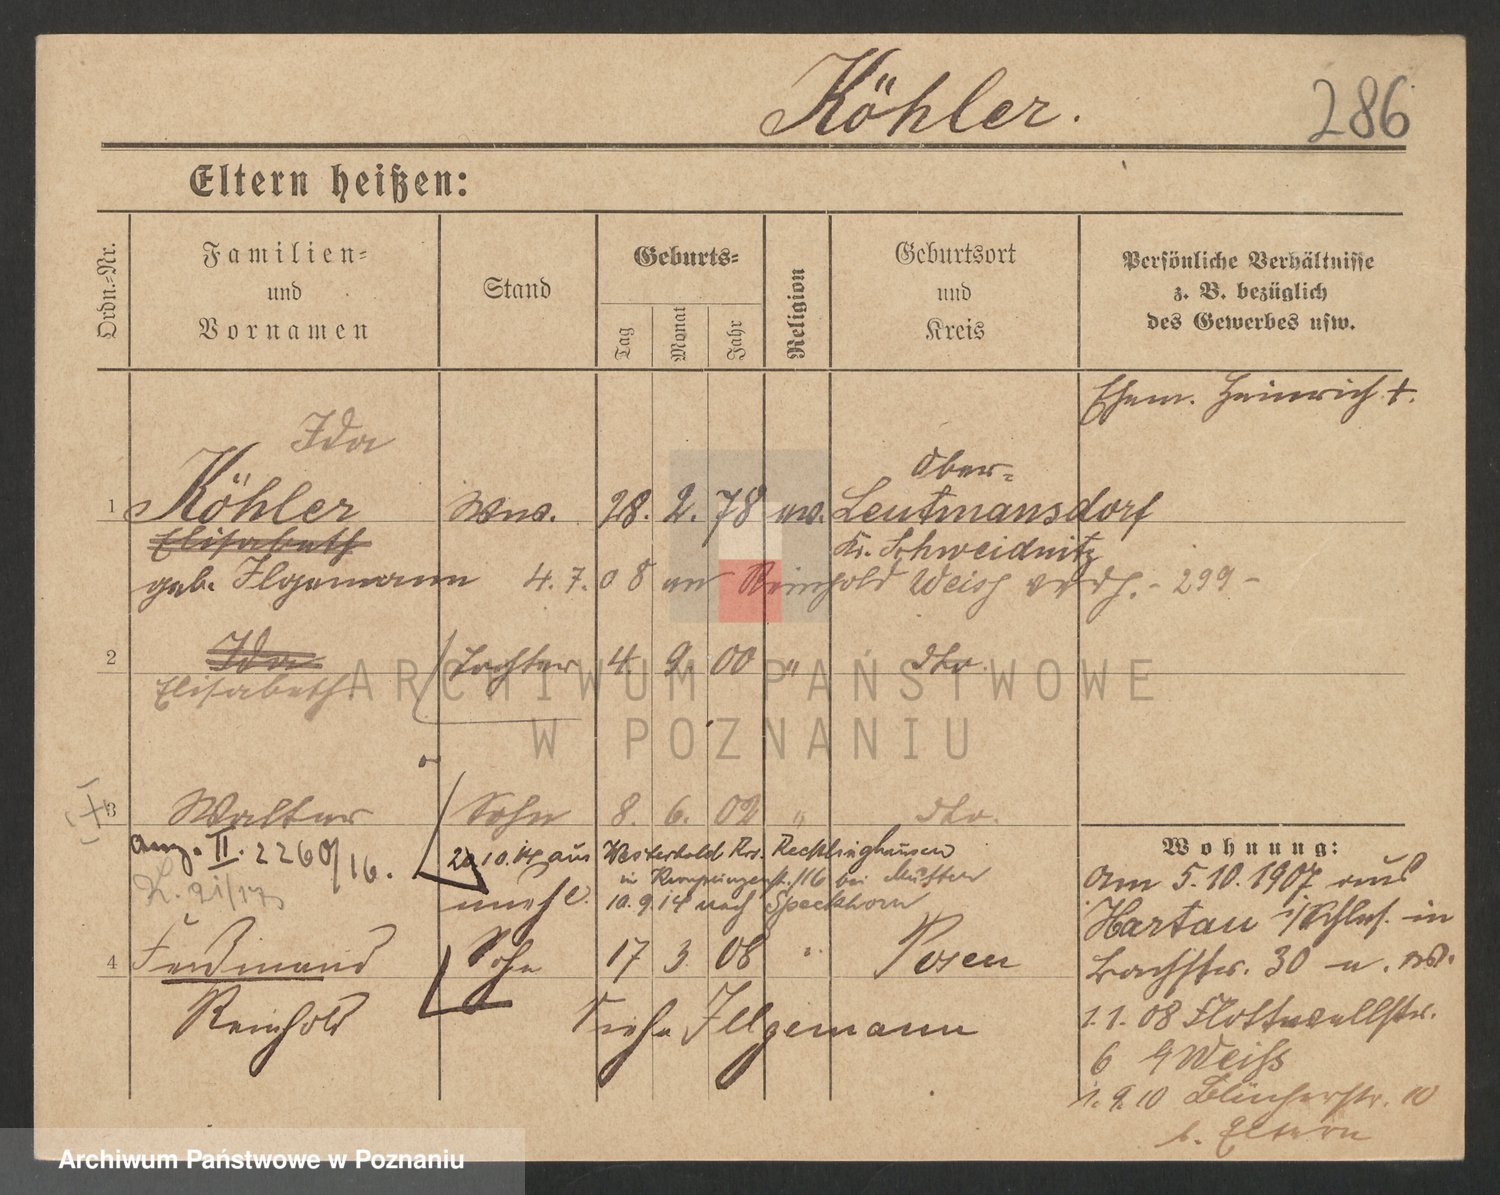 Köhler.
286
Eltern heißen:
Ordn.-Nr.
Familien-
und
Vornamen
Stand
Geburts-
Tag
Monat
Jahr
Religion
Geburtsort
und
Kreis
Persönliche Verhältnisse
z. B. bezüglich
des Gewerbes usw.
Ehem. Heinrich †.
Ida
Ober-
1 Köhler Wwe. 28. 2. 78 ev. Leutmansdorf
Elisabeth Kr. Schweidnitz
geb. Ilgemann 4.7.08 an Reinhold Weiß verh. - 299 -
2 Ida Tochter 4. 9. 00 " dto.
Elisabeth
3 Walter Sohn 8. 6. 02 " dto.
Anz. II. 2260/16. 10.14 aus Westerhold Krs. Recklinghausen
in bei Mutter
unehl. 10.9.14 nach Speckhorn
4 Ferdinand Sohn 17 3 08 " Posen
Reinhold Siehe Ilgemann
Wohnung:
Am 5.10.1907 aus
Hartau i/Schles. in
Bachstr. 30
1.1.08 Flottwellstr.
6 Weiss
1.9.10 Blücherstr. 10
b. Eltern
ARCHIWUM PAŃSTWOWE
W POZNANIU
Archiwum Państwowe w Poznaniu